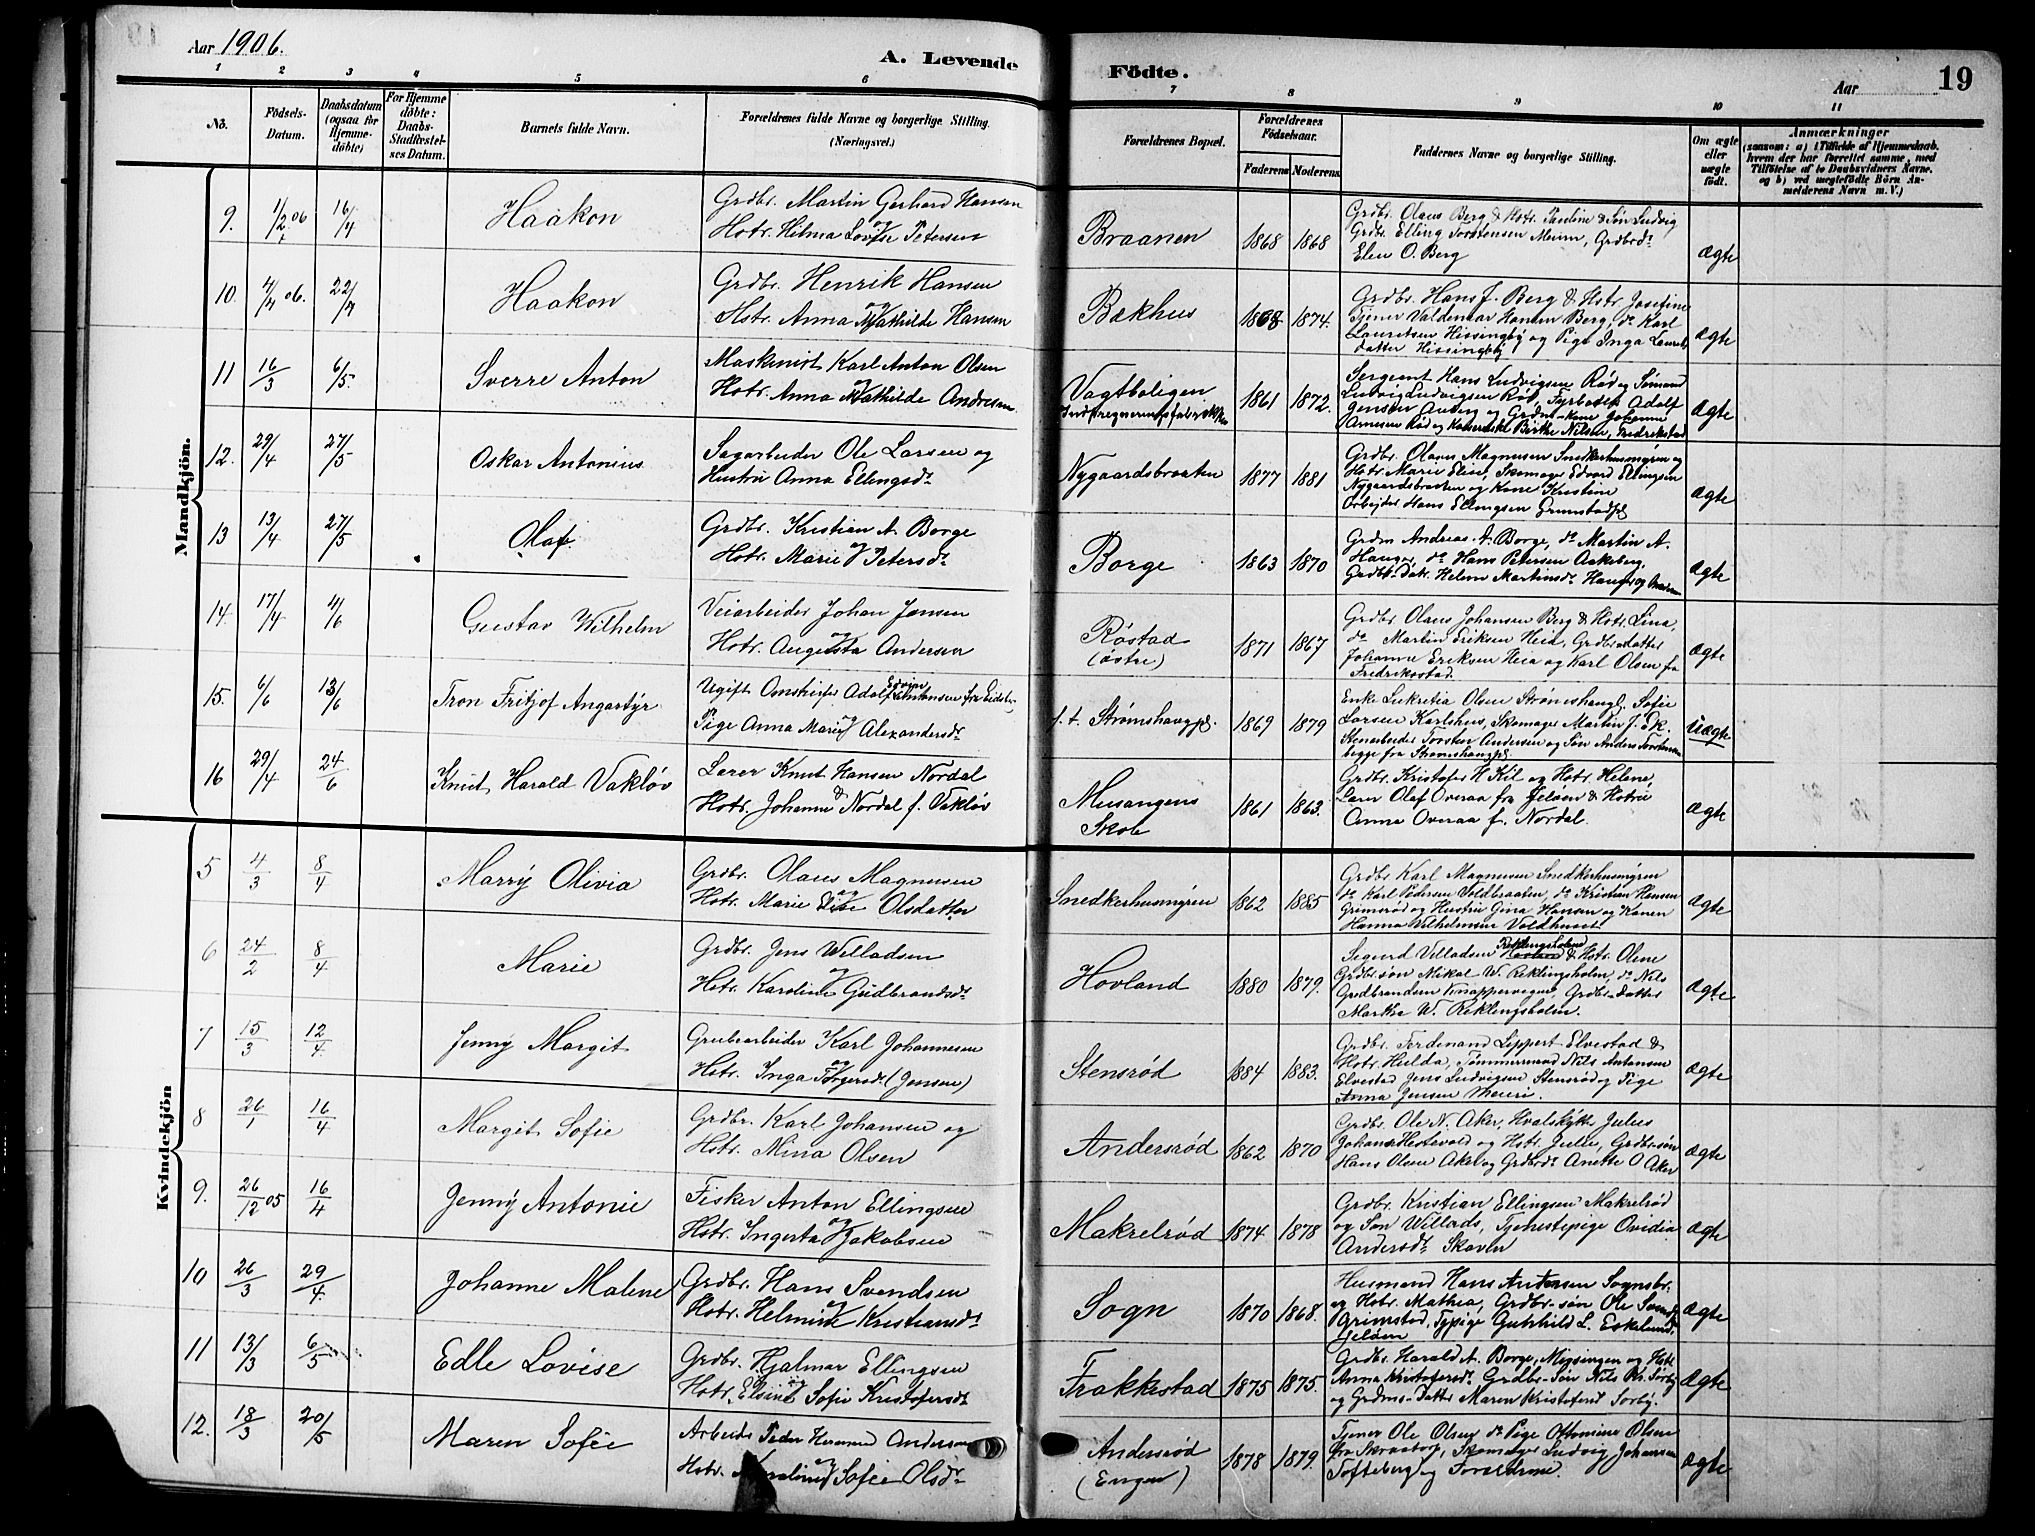 Aar 1906.
A. Levende Födte.
Aar
19
1 2 3 4 5 6 7 8 9 10 11
No.
Födsels-Datum.
Daabsdatum (ogsaa for Hjemmedöbte)
For Hjemmedöbte: Daabs-Stadfæstelses Datum.
Barnets fulde Navn.
Forældrenes fulde Navne og borgerlige Stilling. (Næringsvei.)
Forældrenes Bopæl.
Forældrenes Födselsaar.
Faderens Moderens
Faddernes Navne og borgerlige Stilling.
Om ægte eller uægte födt.
Anmærkninger
(saasom: a) i Tilfælde af Hjemmedaab, hvem der har forrettet samme, med Tilföielse af to Daabsvidners Navne, og b) ved uægtefödte Börn Anmelderens Navn m. V.)
Mandkjön.
9. 1/2 06 16/4 Haakon
Grdbr. Martin Gerhard Hansen
og Hstr. Helma Lovise Petersen
Braanen 1868 1868
Grdbr. Olaus Berg & Hstr. Pauline & Søn Ludvig
Grdbr. Elling Torstensen Meum, Grdbrdr
Elen O. Berg
Ægte
10. 4/4 06. 22/4 Haakon
Grdbr. Henrik Hansen
og Hstr. Anna Mathilde Hansen
Bækhus 1868 1874.
Grdbr. Hans J. Berg & Hstr. Josefine
Tjener Valdemar Hansen Berg, do Karl
Lauritsen Hissingby og Pige Inga Laurits
datter Hissingby
Ægte
11 16/3 6/5. Sverre Anton
Maskinist Karl Anton Olsen
og Hstr. Anna Mathilde Andresen
Vagtboligen
1861 1872.
Sergeant Hans Ludvigsen Rød og Sømand
Ludvig Ludvigsen Rød, Fyrbøder Adolf
Ægte
12. 29/4 27/5 Oskar Antonius
Sagarbeider Ole Larsen og
Hustru Anna Ellingsdr
Nygaardsbraaten 1877 1881
Grdbr. Olaus Magnusen Snedkerhusmyren og
Hstr. Marie Elise, Skomager Edvard Ellingsen
Nygaardsbraaten og Kone Kristine
Arbejder Hans Ellingsen Grimstadpl
Ægte
13 13/4 27/5 Olaf.
Grdbr. Kristian A. Borge
og Hstr. Marie Petersdr
Borge 1863 1870
Grdm Andreas A. Borge, do Martin A.
Hauge, do Hans Petersen Aakeberg
Ægte
14. 17/4 4/6 Gustav Wilhelm
Veiarbeider Johan Jansen
og Hstr. Augusta Andersen
Røstad (østre) 1871 1867
Grdbr. Olaus Johansen Berg & Hstr. Lina,
do Martin Eriksen Heia, Grdbrdatter
Johanne Eriksen Heia og Karl Olsen fra
Fredriksstad
Ægte
15. 6/6 13/6 Tron Fritjof Angantyr
Ugift Adolf Edvin Antonsen fra Eidsb.
og Pige Anna Marie Alexandersdr
f. t. Strømshaugpl. 1869 1879
Enke Lukretia Olsen Strømshaugl, Sofie
Larsen Karlshus, Skomager Martin J. Ek.
Stenarbeider Torsten Andersen og Søn Anders Torstensen
begge fra Strømshaugpl
Uægte
16 29/4 24/6 Knut Harald Vakløv
Lærer Knut Hansen Nordal
& Hstr. Johanne Nordal f. Vakløv
Missingens Skole 1861 1863.
Grdbr. Kristofer H Kil og Hstr. Helene
Lærer Olaf Overaa fra Jeløen & Hstru
Anna Overaa f. Nordal
Ægte
Kvindekjön
5 4/3 8/4 Marry Olivia
Grdbr. Olaus Magnusen
og Hstr. Marie Elise Olsdatter
Snedkerhusmyren 1862 1885
Grdbr Karl Magnusen Snedkerhusmyren
do Karl Pedersen Voldbraaten, do Kristian Hansen
Grimsrød og Hustru Gina Hansen og Konen
Hanna Vilhelmsen Voldhuset.
Ægte
6 24/2 8/4 Marie
Grdbr. Jens Willadsen
og Hstr. Karoline Gudbrandsdr
Hovland 1880 1879.
Sigurd Villadsen Reklingsholm & Hstr. Oline
Grdbr.søn Mikal W. Reklingsholm do Nils
Gudbrandsen Knappervegen, Grdbr.datter
Martha W. Reklingsholm.
Ægte
7 15/3 12/4. Jenny Margit
Grubearbeider Karl Johannesen
og Hstr. Inga Torgersdr (Jensen)
Stensrød 1884 1883.
Grdbr. Ferdinand Lippert Elvestad &
Hstr. Hulda, Tømmermand Nils Antonsen
Elvestad Jens Ludvigsen Stensrød og Pige
Anna Jensen Meieri.
Ægte
8 26/1 16/4 Margit Sofie
Grdbr. Karl Johansen og
Hstr. Nina Olsen
Andersrød 1862 1870
Grdbr. Ole N. Aker, Hvalskytt. Julius
Johans. Hestevold og Hstr. Julie, Grdbr.søn
Hans Olsen Aker og Grdbrdr Anette O Aker
Ægte
9. 26/12 05 16/4 Jenny Antonie
Fisker Anton Ellingsen
og Hstr. Ingerta Jakobsen
Makrelrød 1874 1878
Grdbr. Kristian Ellingsen Makrelrød
og Søn Willads, Tjenestepige Ovidia
Andersdr Skoven
Ægte
10 26/3 29/4. Johanne Malene
Grdbr. Hans Svendsen
og Hstr. Helmine Kristiansdr
Sogn 1870 1868.
Husmand Hans Antonsen Sognsbr.
og Hstr. Mathea, Grdbr-søn Ole Svends.
Grimstad, Tjpige Gunhild L. Eskelund,
Jeløen
Ægte
11 13/3 6/5 Edle Lovise
Grdbr. Hjalmar Ellingsen
og Hstr. Elsine Sofie Kristofersdr
Frakkestad 1875 1875.
Grdbr. Harald A. Borge, Missingen og Hstr
Anna Kristofersdr. Grdbr-Søn Nils Kr. Sørby
og Grdms-Datter Maren Kristofersd Sørby.
Ægte
12. 18/3 20/5 Maren Sofie
Arbeider Peder Herman Anders
og Hstr. Karoline Sofie Olsdr
Andersrød (Engen) 1878 1879.
Tjener Ole Olsen do Pige Ottomine Olsen
Skomager Ludvig Johansen
Tofteberg og Forældrene.
Ægte